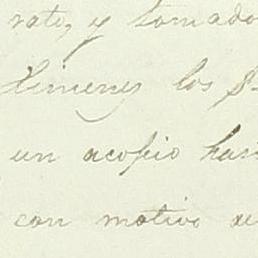 rato, y tomado
Ximenes los
un acopio han
con motivo de